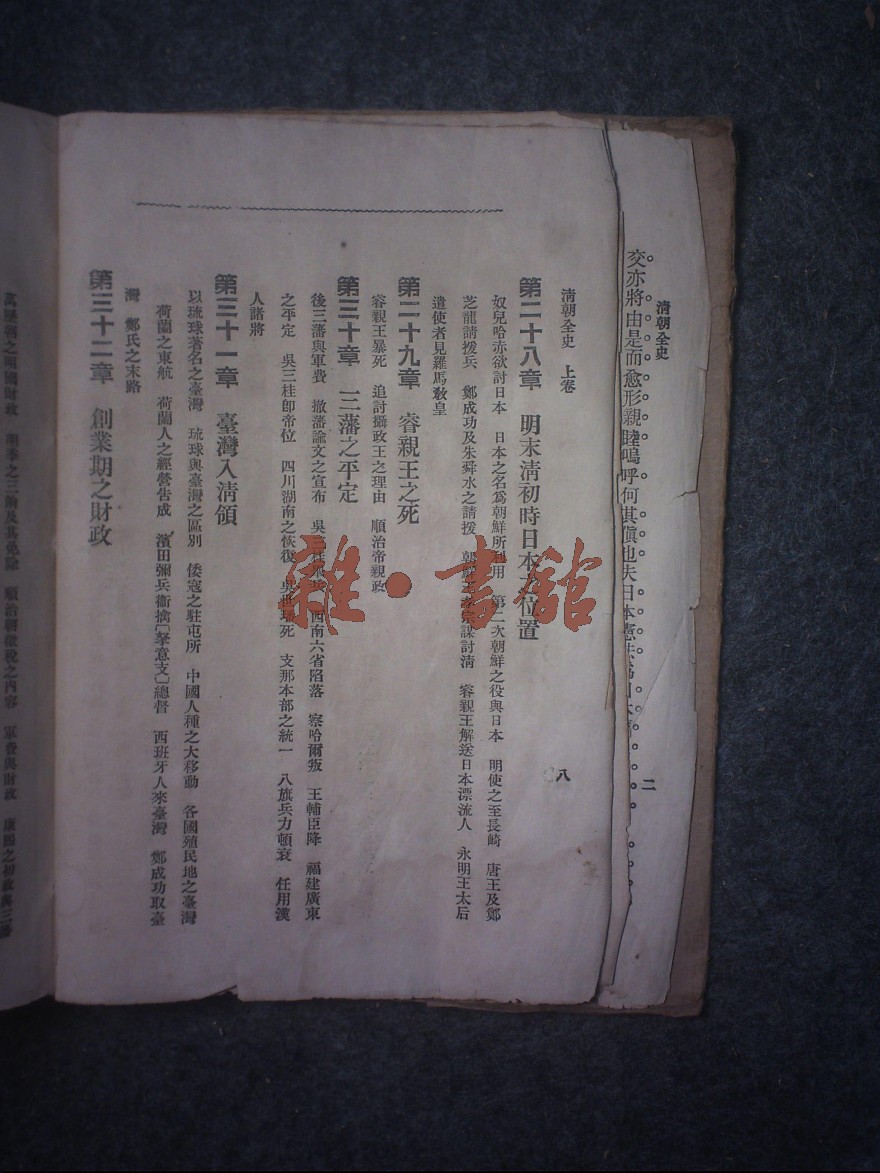 清朝全史
二
交亦將由是而愈形親睦嗚呼何其愼也夫日本憲法
清朝全史　上卷
八
第二十八章　明末淸初時日本之位置
奴兒哈赤欲討日本　日本之名爲朝鮮所利用　第二次朝鮮之役與日本　明使之至長崎　唐王及鄭
芝龍請援兵　鄭成功及朱舜水之請援　宗謀討淸　睿親王解送日本漂流人　永明王太后
遣使者見羅馬敎皇
第二十九章　睿親王之死
睿親王暴死　追討攝政王之理由　順治帝親政
第三十章　三藩之平定
後三藩與軍費　撤藩諭文之宣布　吳三桂　西南六省陷落　察哈爾叛　王輔臣降　福建廣東
之平定　吳三桂卽帝位　四川湖南之恢復　吳世璠死　支那本部之統一　八旗兵力頓衰　任用漢
人諸將
第三十一章　臺灣入淸領
以琉球著名之臺灣　琉球與臺灣之區別　倭寇之駐屯所　中國人種之大移動　各國殖民地之臺灣
荷蘭之東航　荷蘭人之經營告成　濱田彌兵衞擒〔拏意支〕總督　西班牙人來臺灣　鄭成功取臺
灣　鄭氏之末路
第三十二章　創業期之財政
萬曆朝之明國財政　明季之三餉及其免除　順治朝徵稅之內容　軍費與財政　康熙之初政與三藩
雜·書館